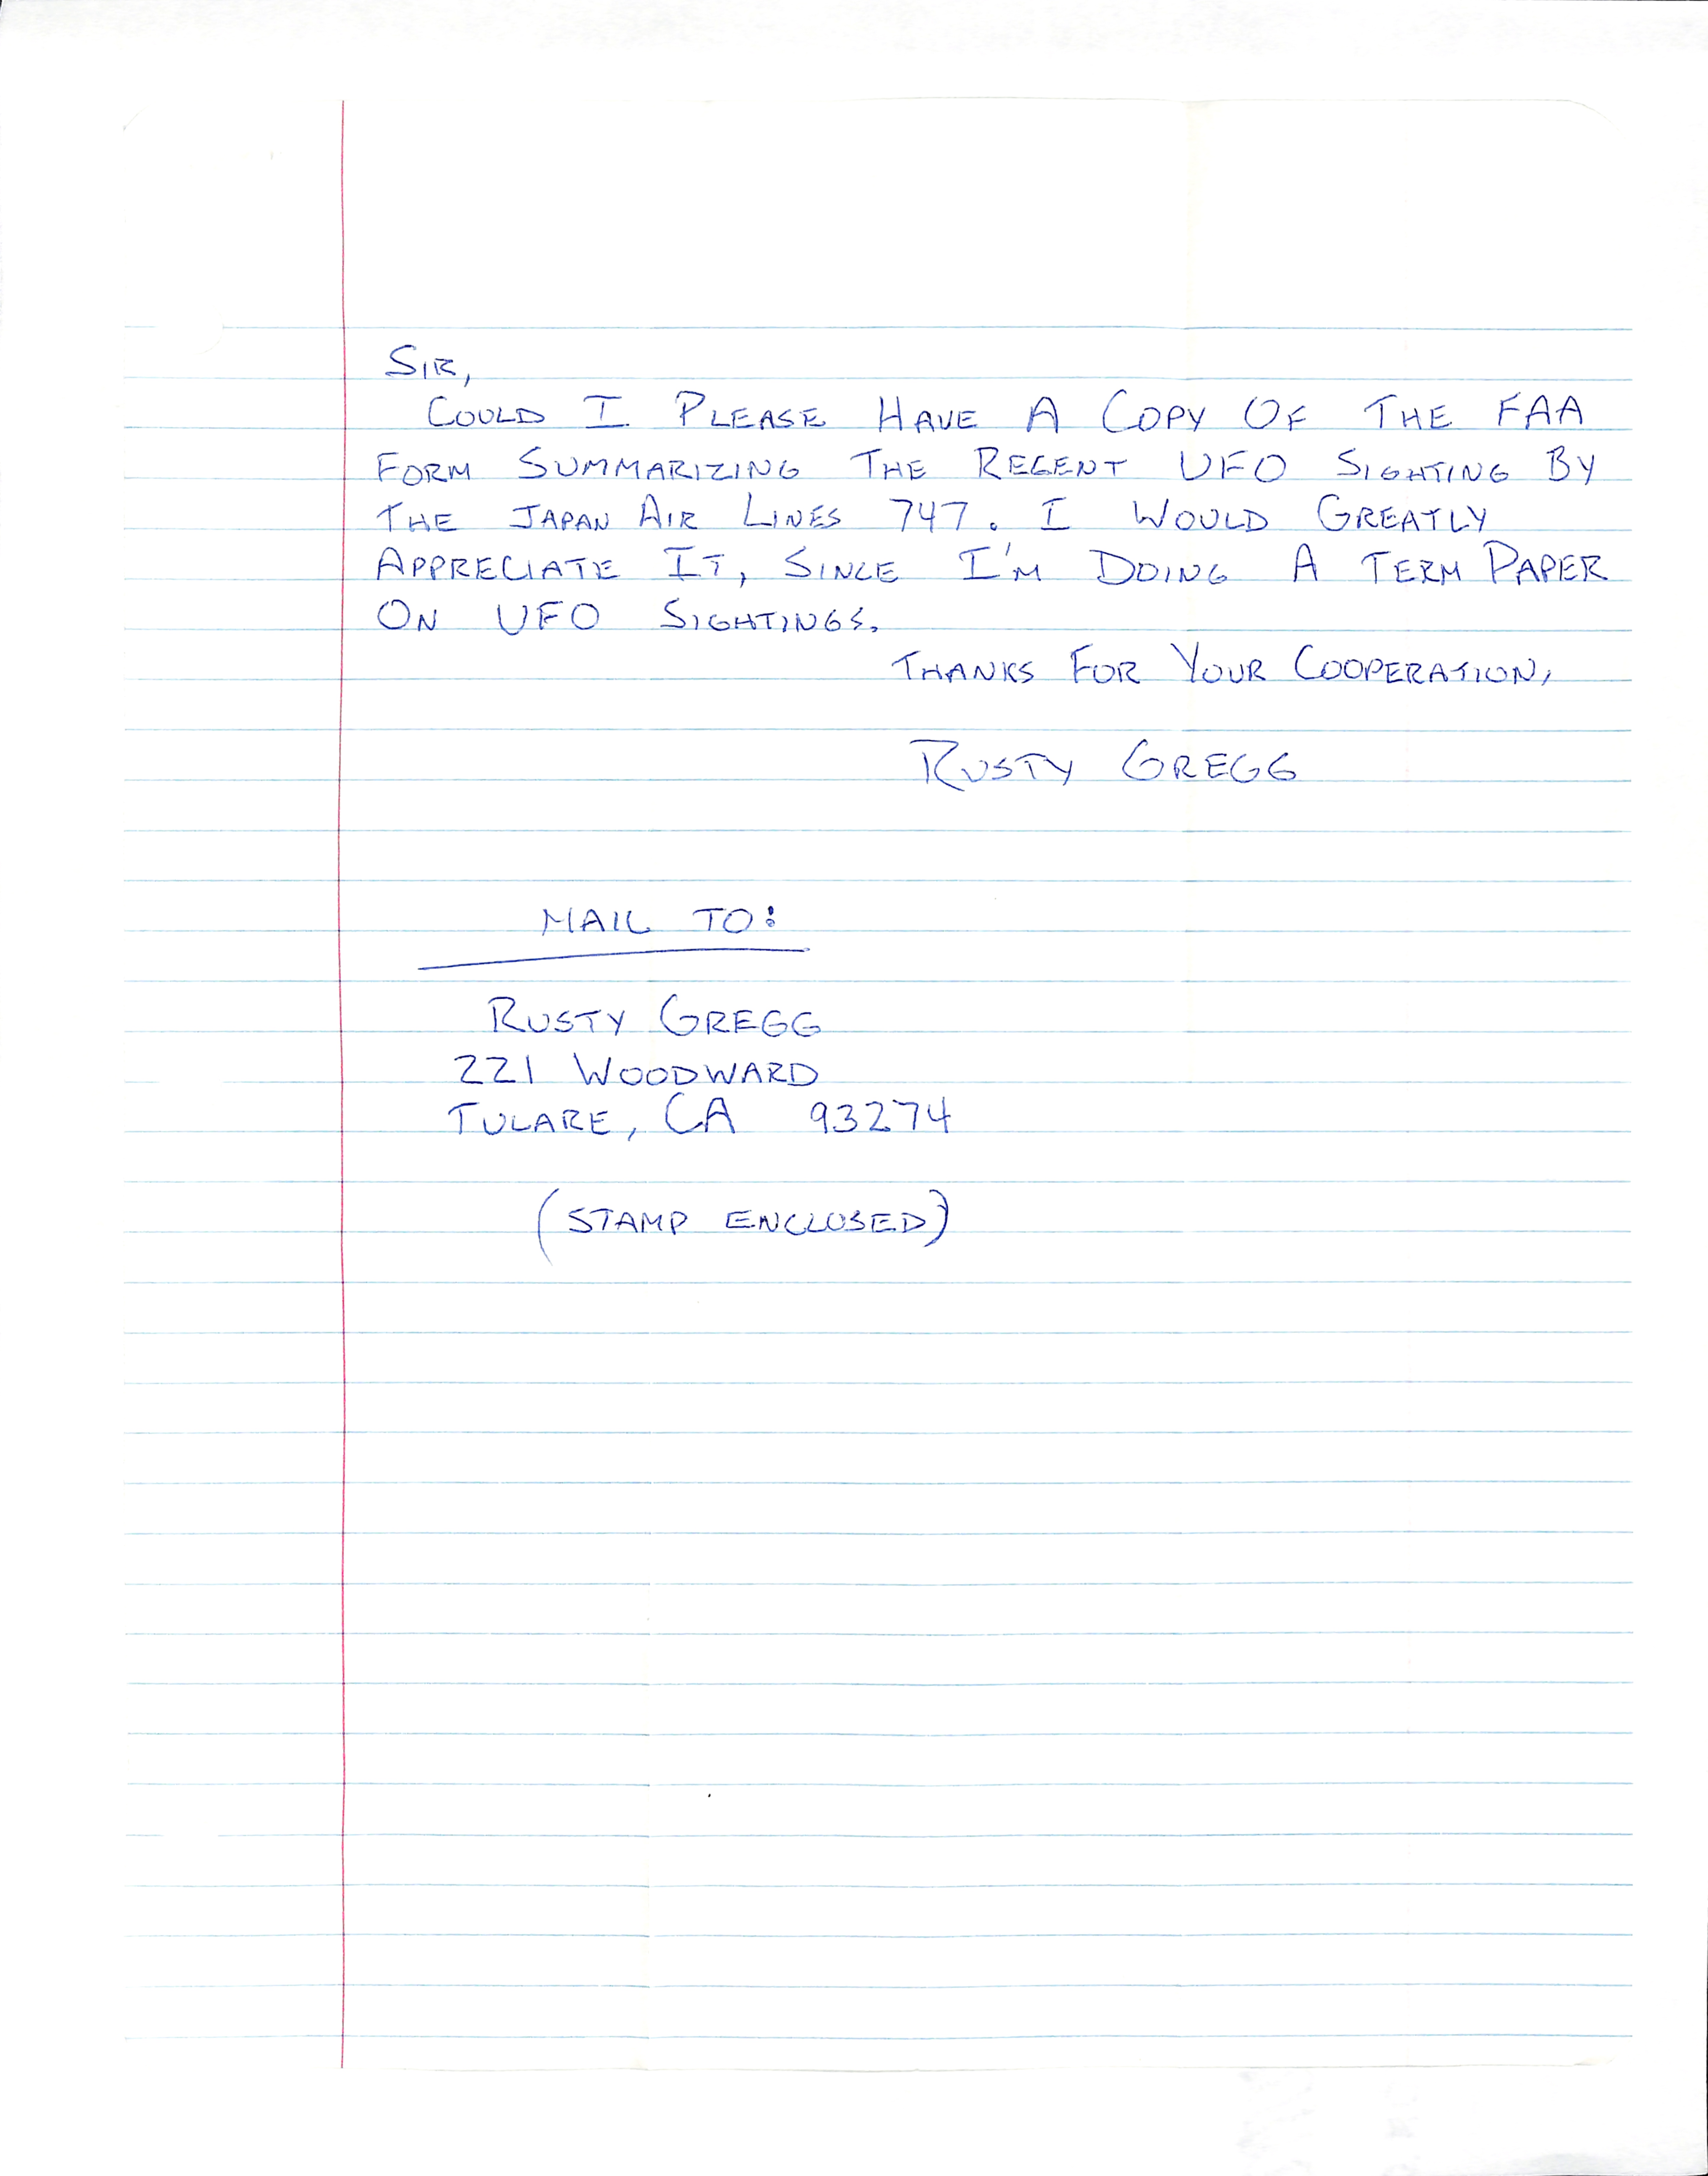 SIR,
COULD I PLEASE HAVE A COPY OF THE FAA
FORM SUMMARIZING THE RECENT UFO SIGHTING BY
THE JAPAN AIR LINES 747. I WOULD GREATLY
APPRECIATE IT, SINCE I'M DOING A TERM PAPER
ON UFO SIGHTINGS.
THANKS FOR YOUR COOPERATION,
RUSTY GREGG
MAIL TO:
RUSTY GREGG
221 WOODWARD
TULARE, CA 93274
(STAMP ENCLOSED)